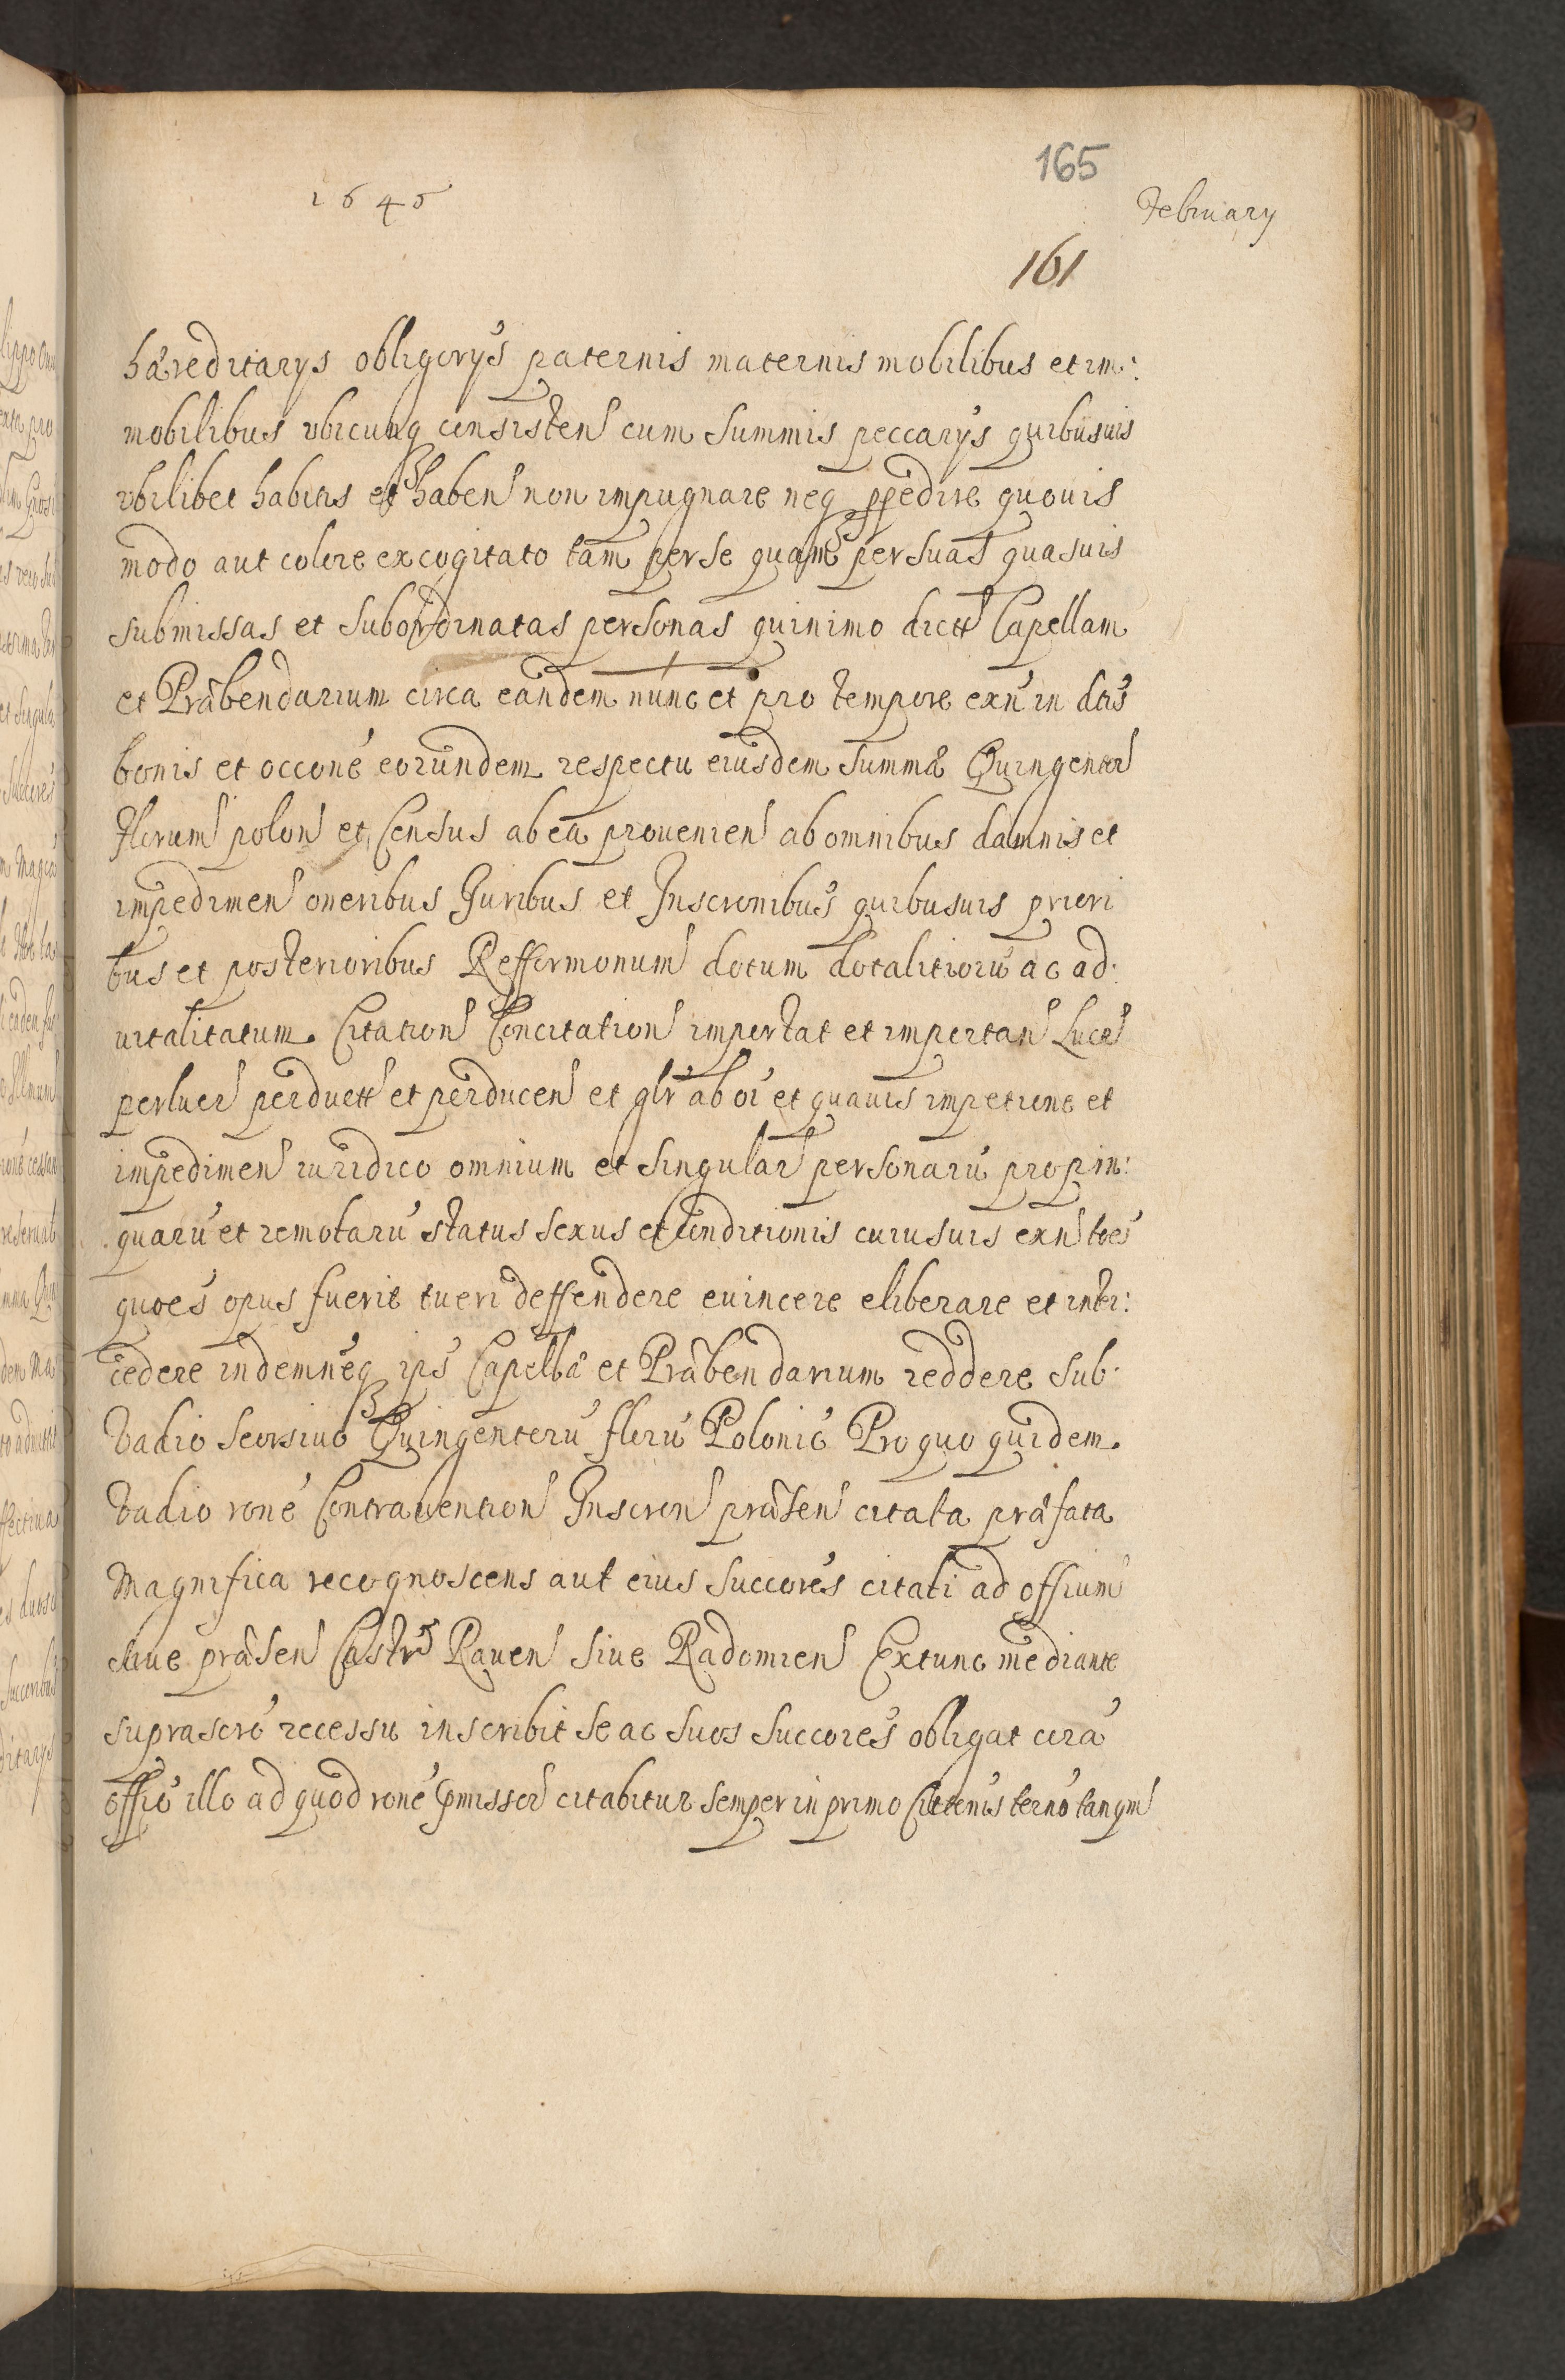 165
1645
February
161
hæreditarys obligorys paternis maternis mobilibus et im:
mobilibus ubicunq consisten cum summis peccarys quibusuis
ubilibet habitis et haben non impugnare neq ppedire quouis
modo aut colore excogitato tam per se quam per suas quasuis
submissas et subordinatas personas quinimo dictt Capellam
et Præbendarium circa eandem nunc et pro tempore exñ in dtis
bonis et occone eorundem respectu eiusdem summæ Quingentor
florum polon et Census ab ea prouenien ab omnibus damnis et
impedimen oneribus Juribus et Inscronibus quibusuis priori
bus et posterioribus Refformonum dotum dotalitioru ac ad:
uitalitatum Citation Concitation importat et importan Lucr
perlucr perductt et perducen et glr ab oi et quauis impetione et
impedimen iuridico omnium et singular personaru propin:
quaru et remotaru status sexus et conditionis cuiusuis exn toes
quoes opus fuerit tueri deffendere euincere eliberare et inter:
cedere indemneq ips Capellæ et Præbendarium reddere sub
Vadio seorsiuo Quingenteru floru Polonic Pro quo quidem
Vadio rone Contrauention Inscron præsen citata præfata
Magnifica recognoscens aut eius succores citati ad offium
siue præsen Castr Rauen siue Radomien Extunc mediante
suprascro recessu inscribit se ac suos succores obligat cora
offio illo ad quod rone pmissor citabitur semper in primo Cittenis terno tanqm